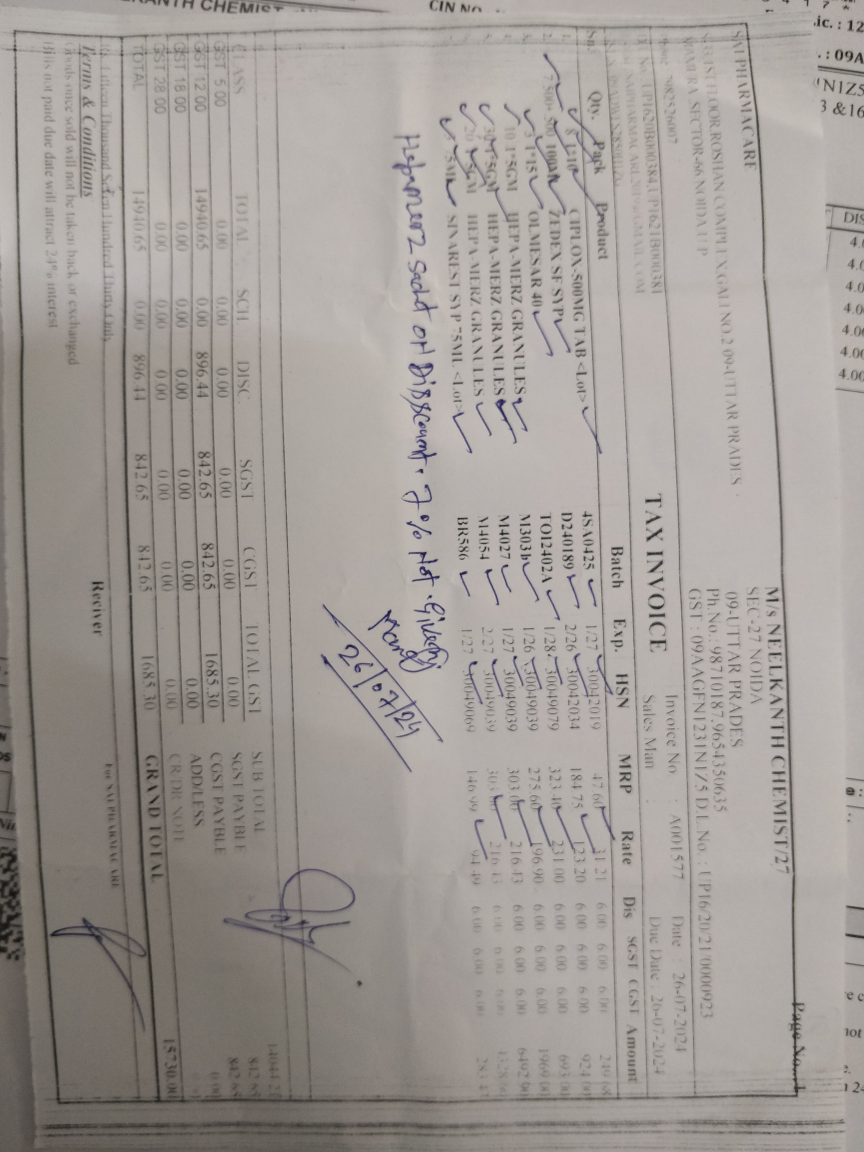 RANTH CHEMIST
CIN NO.
Page No...1
SAI PHARMACARE
FLOOR,ROSHAN COMPLEX,GALI NO 2 09-UTTAR PRADES
SECTOR-66 NOIDA U P
M/s NEELKANTH CHEMIST/27
SEC-27 NOIDA
09-UTTAR PRADES
Ph.No.: 98710187,9654350635
GST : 09AAGFN1231N1Z5 D.L.No. : UP16/20/21/0000923
TAX INVOICE
Invoice No : A001577 Date : 26-07-2024
Sales Man : Due Date : 26-07-2024
Qty. Pack Product Batch Exp. HSN MRP Rate Dis SGST CGST Amount
8 1*10 CIPLOX-500MG TAB <Lot> 4SA0425 1/27 30042019 47.60 31.21 6.00 6.00 6.00 249.68
ZEDEX SF SYP D240189 2/26 30042034 184.75 123.20 6.00 6.00 6.00 924.00
3 1*15 OLMESAR 40 TO12402A 1/28 30049079 323.40 231.00 6.00 6.00 6.00 693.00
10 1*5GM HEPA-MERZ GRANULES 1/26 30049039 275.60 196.90 6.00 6.00 6.00 1969.00
30 1*5GM HEPA-MERZ GRANULES M4027 1/27 30049039 303.00 216.43 6.00 6.00 6.00 6492.90
20 HEPA-MERZ GRANULES M4054 2/27 30049039 216.43 6.00 6.00 6.00
SINAREST SYP 75ML <Lot> BR586 1/27 30049069 146.99 94.49 6.00 6.00 6.00
Hepamerz Sachet on Disscount. 7% Not. Given
26/07/24
CLASS TOTAL SCH DISC. SGST CGST TOTAL GST
GST 5.00 0.00 0.00 0.00 0.00 0.00 0.00
GST 12.00 14940.65 0.00 896.44 842.65 842.65 1685.30
GST 18.00 0.00 0.00 0.00 0.00 0.00 0.00
GST 28.00 0.00 0.00 0.00 0.00 0.00 0.00
TOTAL 14940.65 0.00 896.44 842.65 842.65 1685.30
SUB TOTAL
SGST PAYBLE 842.65
CGST PAYBLE 842.65
ADD/LESS 0.00
CR/DR NOTE
GRAND TOTAL 15730.00
Rs. Fifteen Thousand Seven Hundred Thirty Only
Terms & Conditions
Goods once sold will not be taken back or exchanged
Bills not paid due date will attract 24% interest
Reciver
For SAI PHARMACARE